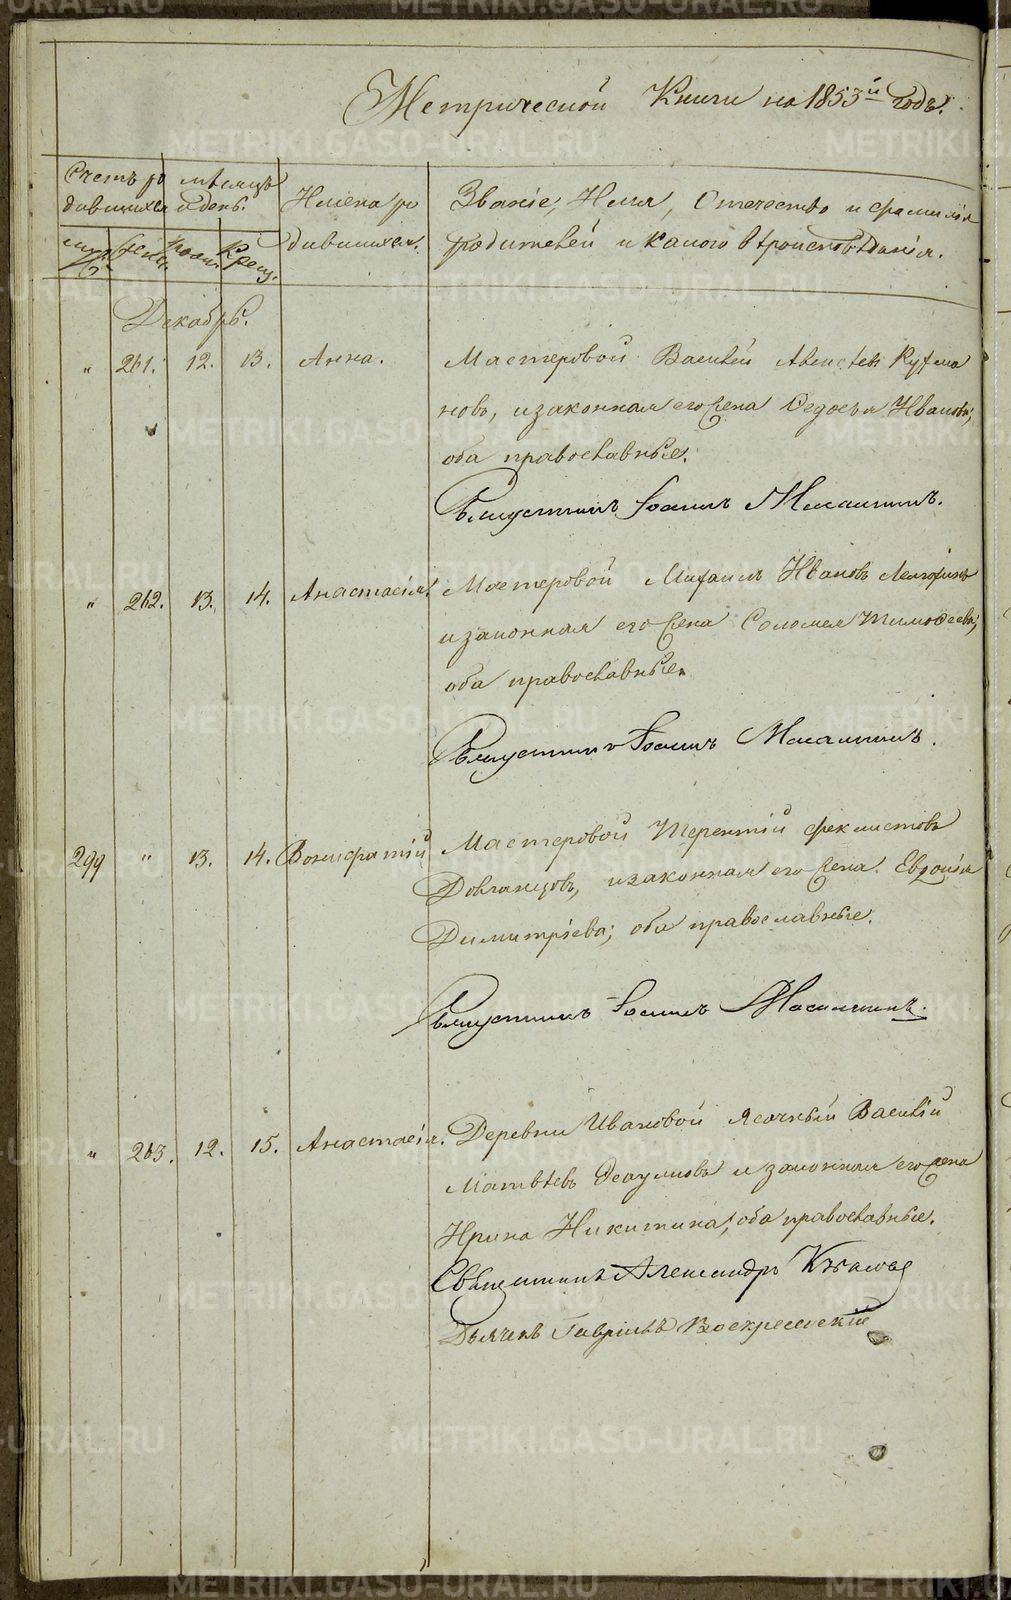 Метрической Книги на 1853й годъ.
Счетъ ро
дившихся
мѣсяцъ
и день.
Имена ро
дившихся.
Званіе, Имя, Отечество и фамилія
родителей и какого вѣроисповѣданія.
муж. жен. рожд. Крещ.
Декабрь.
" 261. 12. 13. Анна. Мастеровой Василій Алексѣевъ
новъ, и законная его Жена Федосья Иванова,
оба православные.
Священникъ Іоаннъ
" 262. 13. 14. Анастасія. Мастеровой Михаилъ Ивановъ
и законная его Жена Соломея Тимофеева,
оба православные.
Священникъ Іоаннъ
299 " 13. 14. Вонифатій Мастеровой Терентій Феклистовъ
и законная его Жена Евдокія
Димитріева; оба православные.
Священникъ Іоаннъ
" 263. 12. 15. Анастасія. Деревни Ивановой Ясачный Василій
Матвѣевъ и законная его Жена
Ирина Никитина, оба православные.
Священникъ Александръ
Дьячекъ Гавріилъ Воскресенскій
METRIKI.GASO-URAL.RU